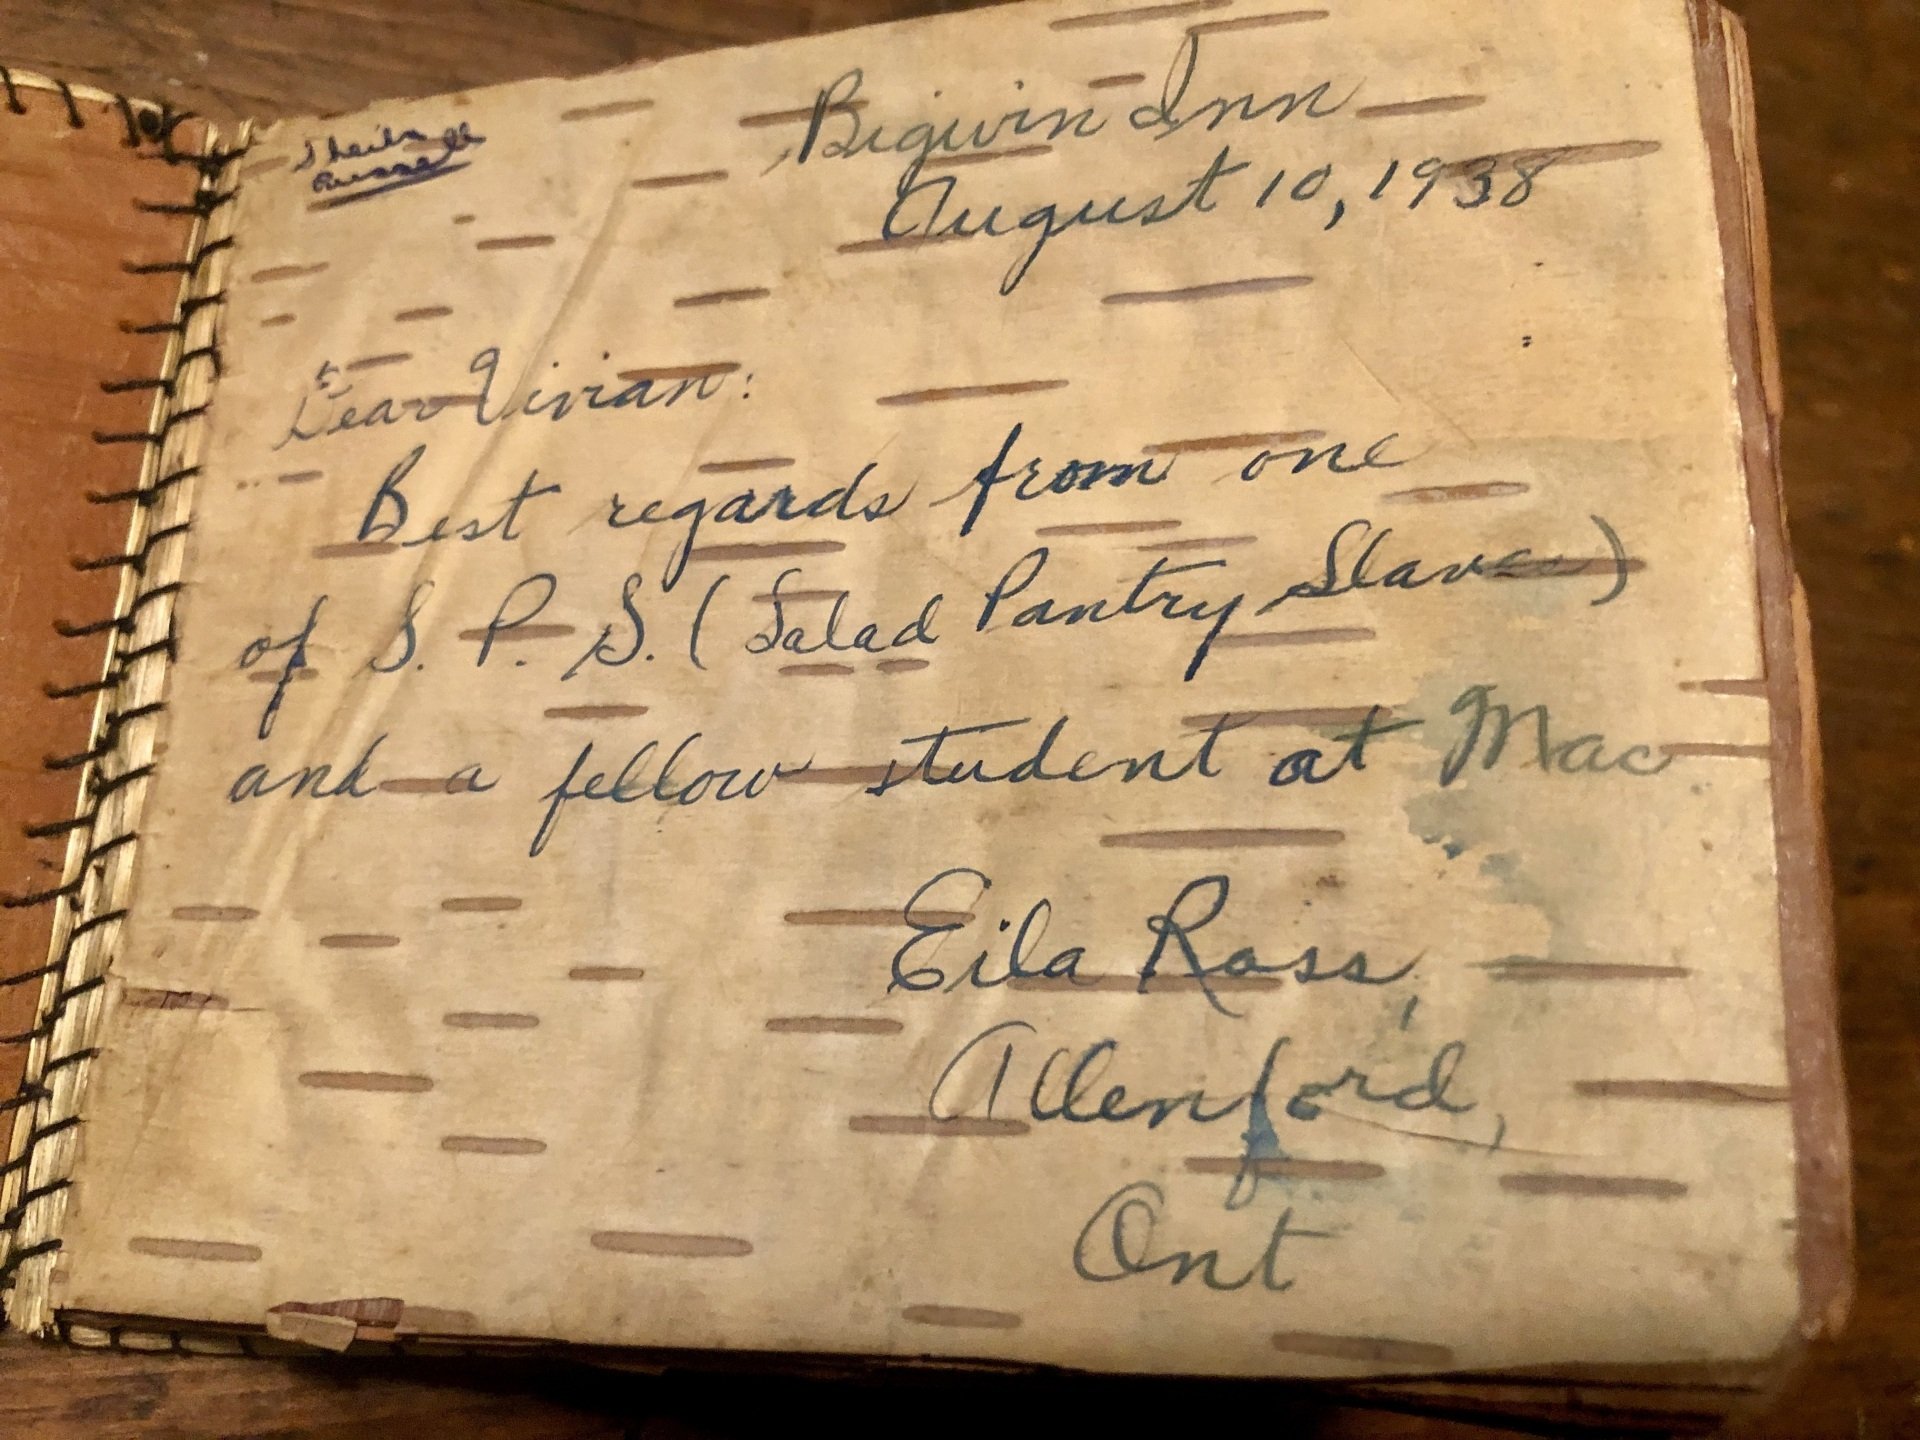 Sheila
Russell
Bigwin Inn
August 10, 1938
Dear Vivian:
Best regards from one
of S. P. S. (Salad Pantry Slaves)
and a fellow student at Mac
Eila Ross,
Allenford,
Ont